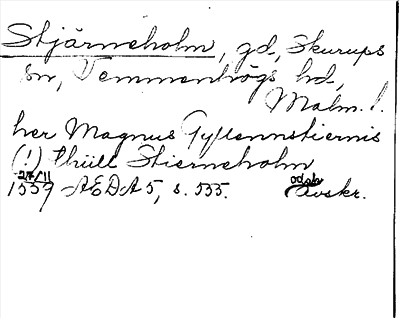 Stjärneholm, gd, Skurups
sn, Vemmenhögs hd,
Malm. l.
her Magnus Gyllennstiernis
(!) thiill Stierneholm
27/11
1559 AEDA 5, s. 535. odat. Avskr.